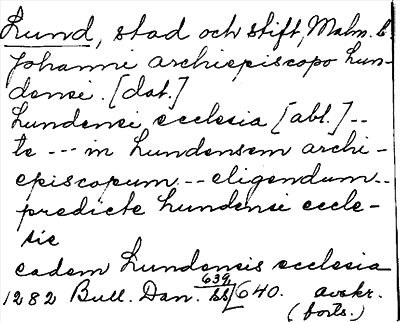 Lund, stad och stift, Malm. l.
Johanni archiepiscopo Lun-
densi. [dat.]
Lundensi ecclesia [abl.] --
te --- in Lundensem archi-
episcopum -- eligendum --
predicte Lundensi eccle-
sie
eadem Lundensis ecclesia
639
1282 Bull. Dan. 640. avskr.
(forts.)